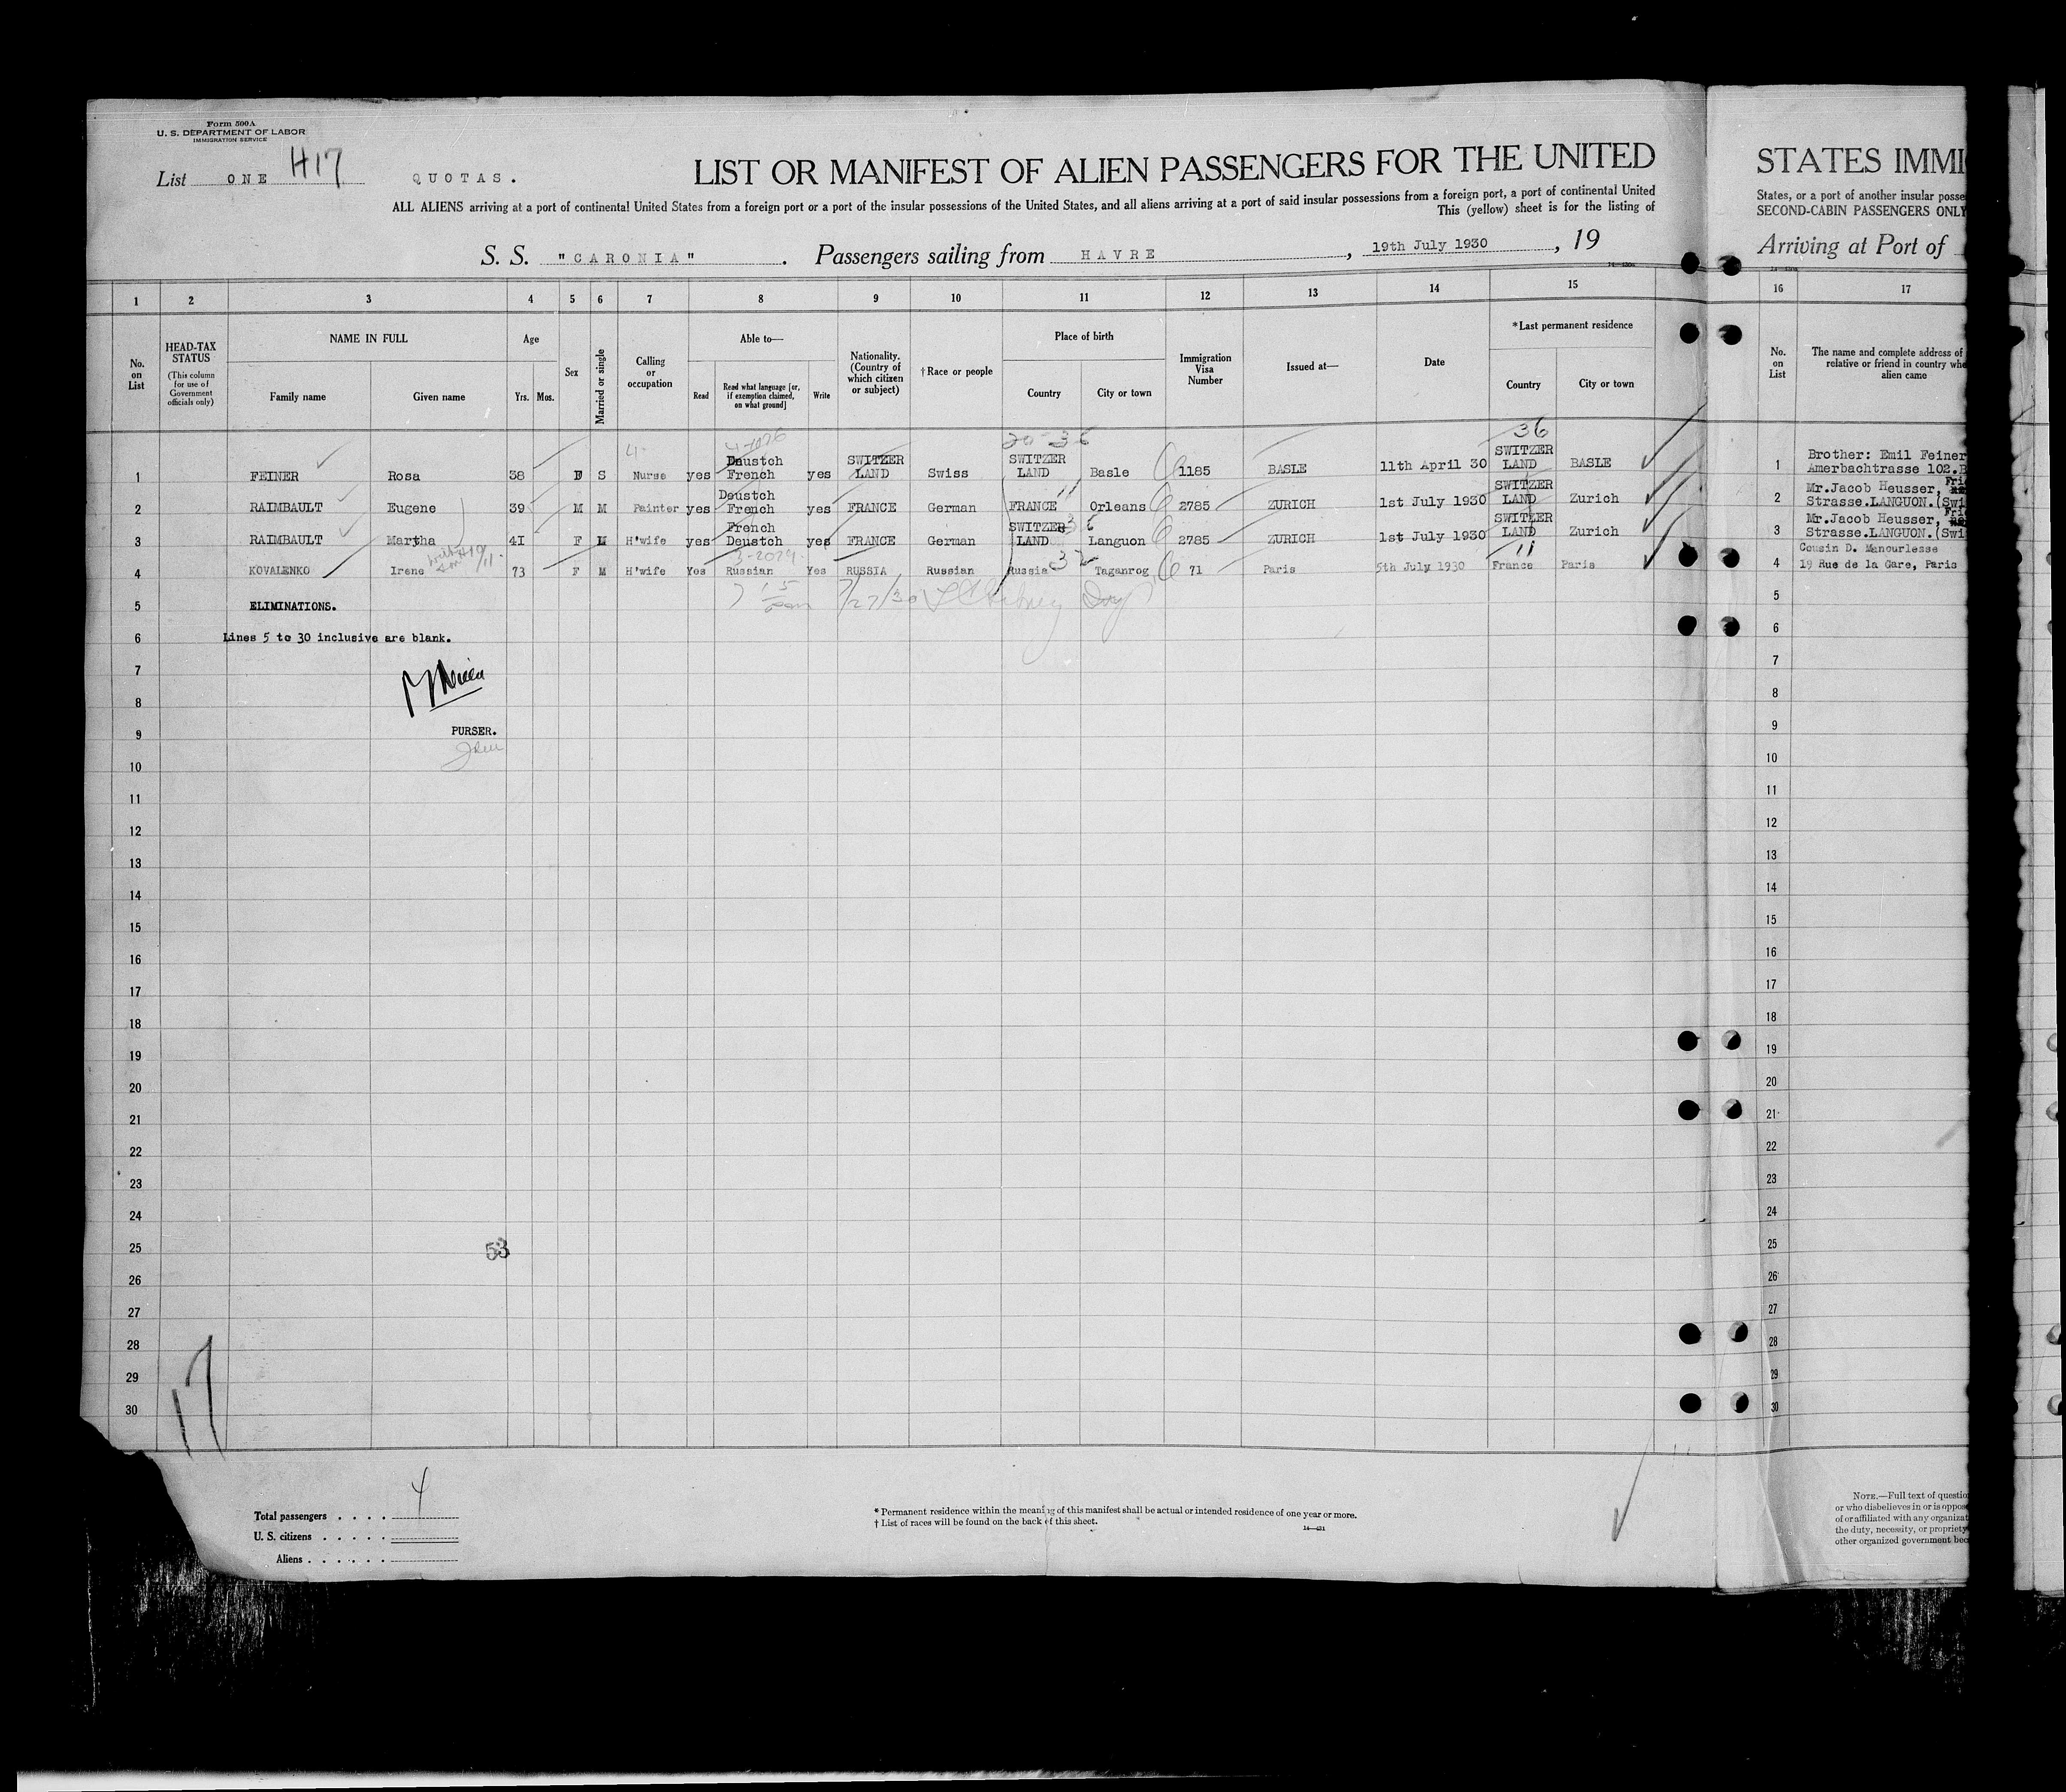 Form 500A
U. S. DEPARTMENT OF LABOR
IMMIGRATION SERVICE
List ONE H17 QUOTAS.
LIST OR MANIFEST OF ALIEN PASSENGERS FOR THE UNITED
STATES IMMI
ALL ALIENS arriving at a port of continental United States from a foreign port or a port of the insular possessions of the United States, and all aliens arriving at a port of said insular possessions from a foreign port, a port of continental United
States, or a port of another insular posse
This (yellow) sheet is for the listing of
SECOND-CABIN PASSENGERS ONLY
S. S. "CARONIA". Passengers sailing from HAVRE, 19th July 1930, 19
Arriving at Port of
1 2 3 4 5 6 7 8 9 10 11 12 13 14 15 16 17
No. on List
HEAD-TAX STATUS
(This column for use of Government officials only)
NAME IN FULL
Family name
Given name
Age
Yrs. Mos.
Sex
Married or single
Calling or occupation
Able to—
Read
Read what language [or, if exemption claimed, on what ground]
Write
Nationality. (Country of which citizen or subject)
†Race or people
Place of birth
Country
City or town
Immigration Visa Number
Issued at—
Date
*Last permanent residence
Country
City or town
No. on List
The name and complete address of
relative or friend in country whe
alien came
20-36
36
1 FEINER Rosa 38 F S Nurse yes Deustch French yes SWITZER LAND Swiss SWITZER LAND Basle 1185 BASLE 11th April 30 SWITZER LAND BASLE 1 Brother: Emil Feiner
Amerbachtrasse 102.B
2 RAIMBAULT Eugene 39 M M Painter yes Deustch French yes FRANCE German FRANCE 11 Orleans 2785 ZURICH 1st July 1930 SWITZER LAND Zurich 2 Mr.Jacob Heusser, Fri
Strasse.LANGUON.(Swi
3 RAIMBAULT Martha 41 F M H'wife yes French Deustch yes FRANCE German SWITZER LAND 36 Languon 2785 ZURICH 1st July 1930 SWITZER LAND Zurich 3 Mr.Jacob Heusser, Fri
Strasse.LANGUON.(Swi
4 KOVALENKO Irene 73 F M H'wife Yes Russian Yes RUSSIA Russian Russia 32 Taganrog 71 Paris 5th July 1930 France 11 Paris 4 Cousin D. Manourlesse
19 Rue de la Gare, Paris
5 ELIMINATIONS. 7/27/30 5
6 Lines 5 to 30 inclusive are blank. 6
7 7
8 8
9 PURSER. 9
10 10
11 11
12 12
13 13
14 14
15 15
16 16
17 17
18 18
19 19
20 20
21 21
22 22
23 23
24 24
25 53 25
26 26
27 27
28 28
29 29
30 30
17
Total passengers . . . . 4
U. S. citizens . . . . .
Aliens . . . . . .
* Permanent residence within the meaning of this manifest shall be actual or intended residence of one year or more.
† List of races will be found on the back of this sheet.
NOTE.—Full text of questio
or who disbelieves in or is oppose
of or affiliated with any organizat
the duty, necessity, or propriety
other organized government bec